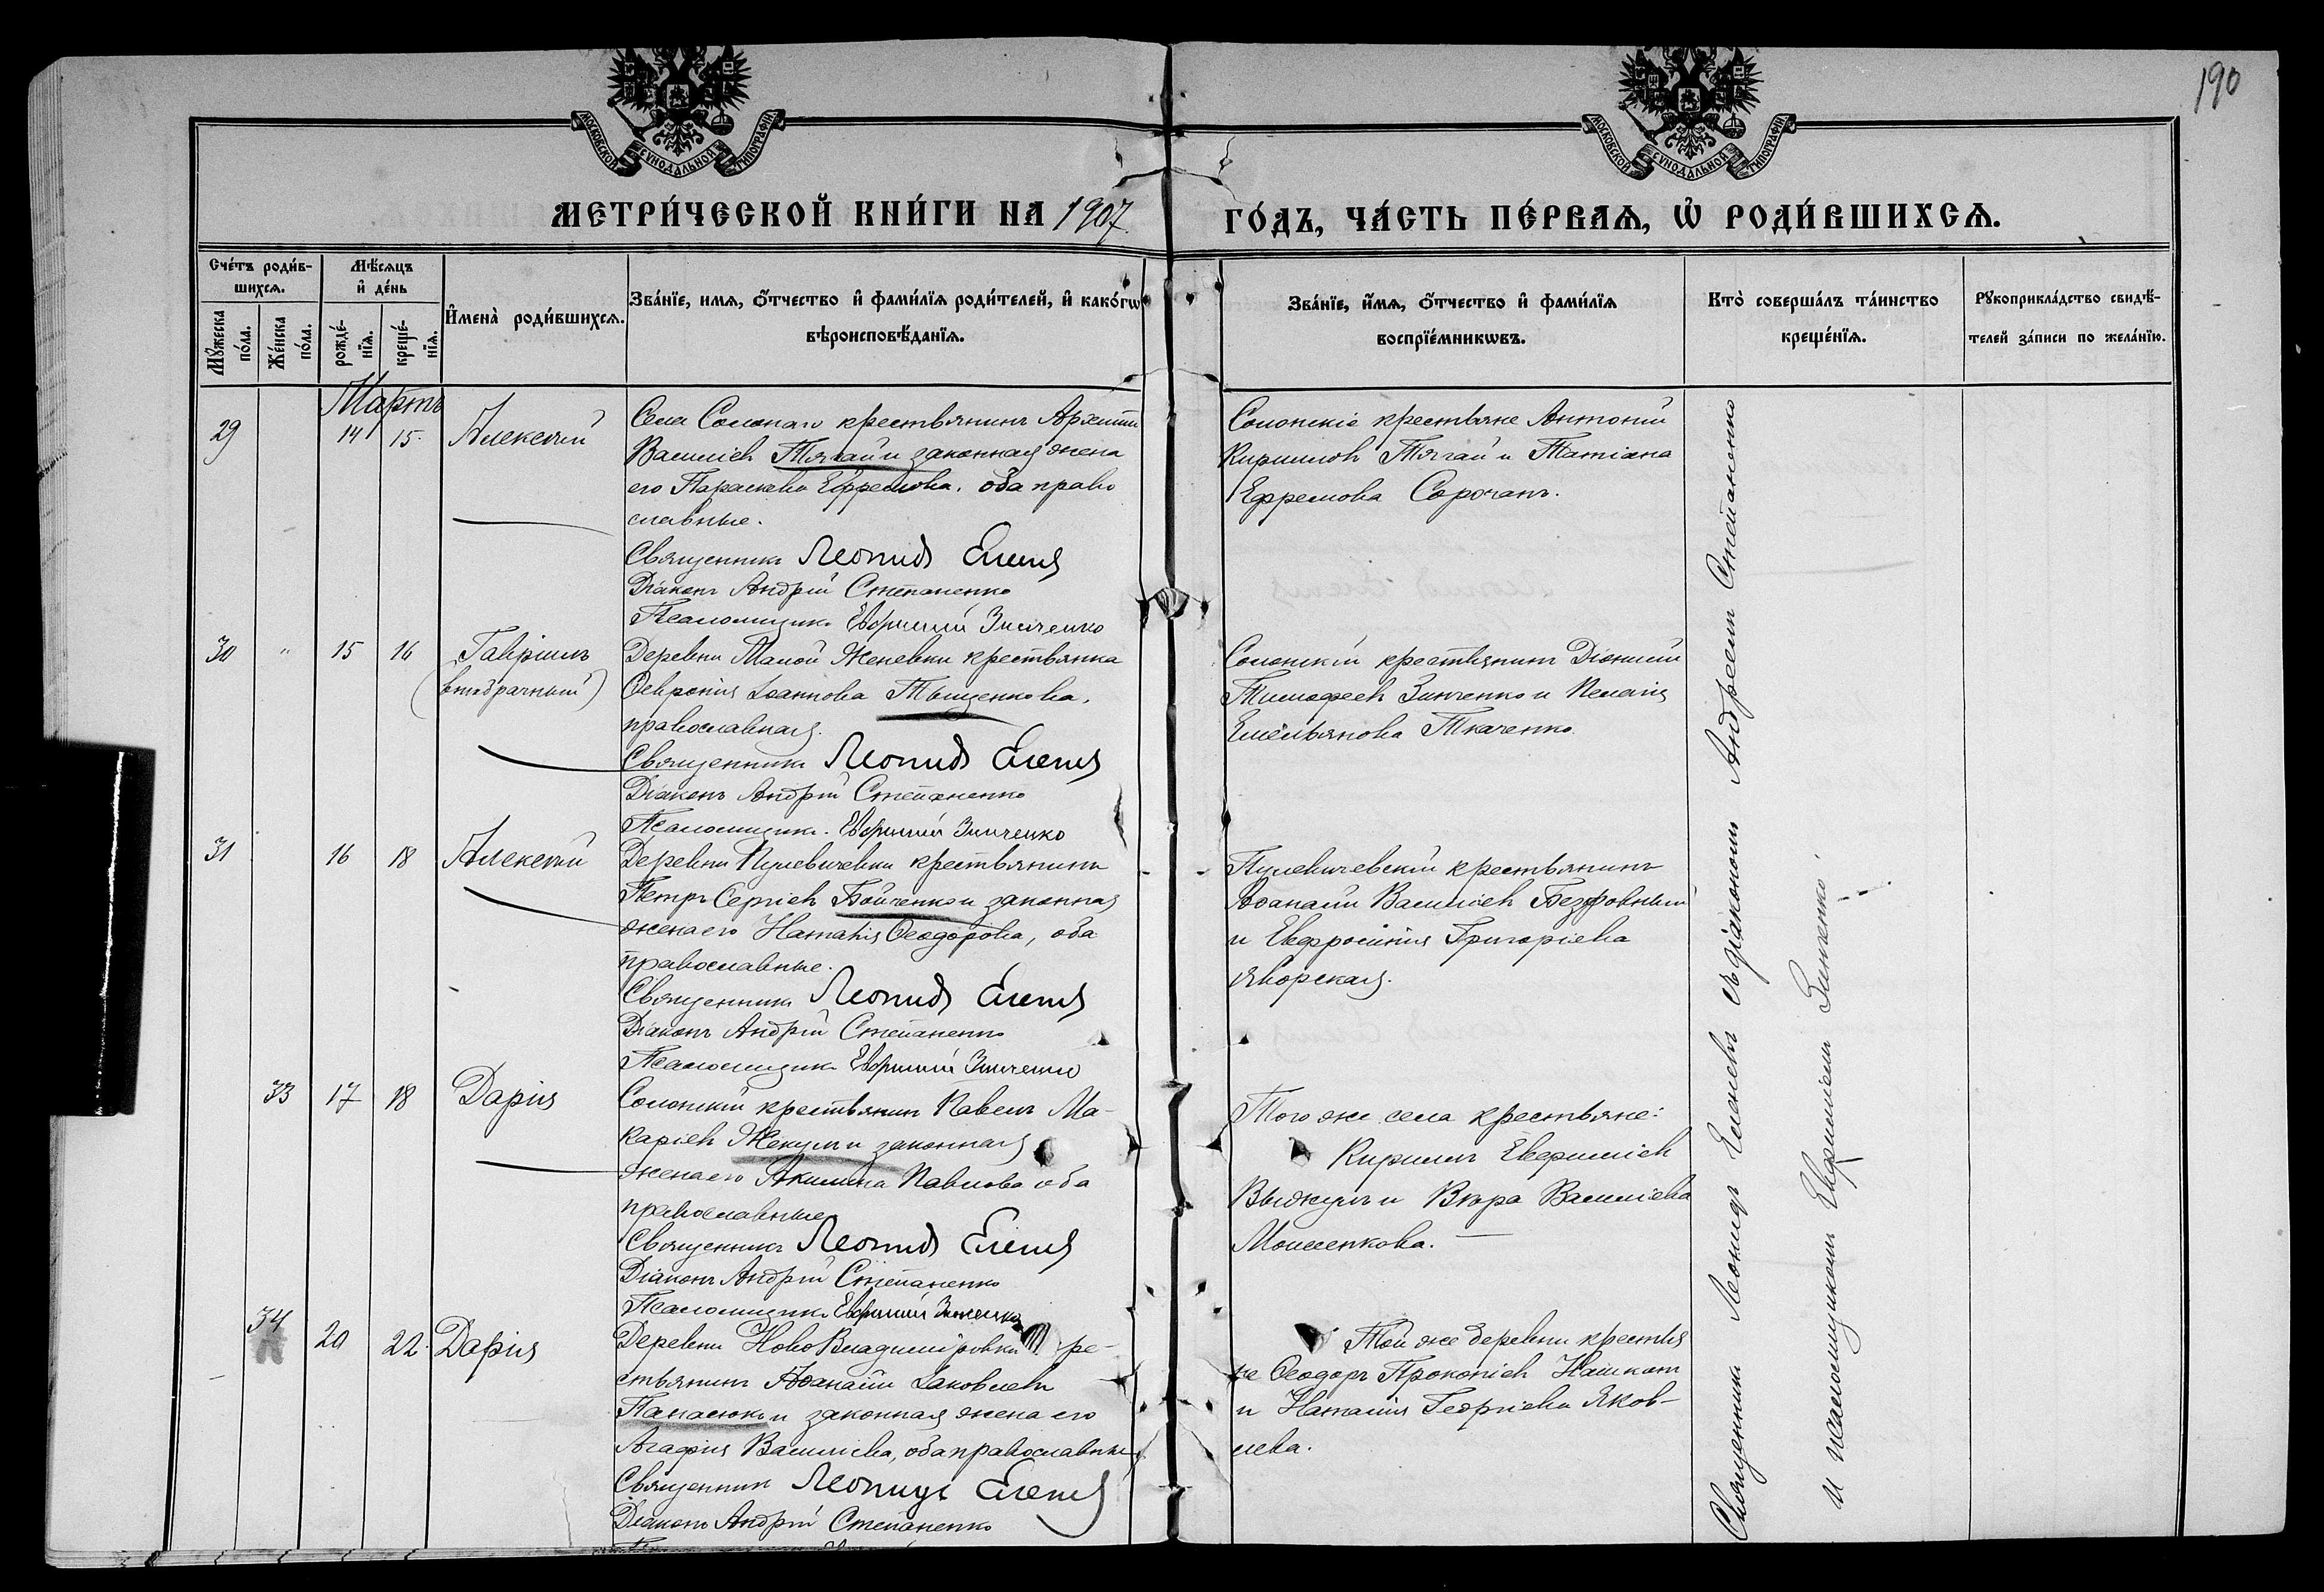 190
МОСКОВСКОЙ СѴНОДАЛЬНОЙ ТИПОГРАФІИ
МОСКОВСКОЙ СѴНОДАЛЬНОЙ ТИПОГРАФІИ
МЕТРИ́ЧЕСКОЙ КНИ́ГИ НА 1907.
ГО́ДЪ, ЧА́СТЬ ПЕ́РВАѦ, Ѡ҆ РОДИ́ВШИХСѦ.
Сче́тъ роди́в-
шихсѧ.
Мѣ́сѧцъ
и҆ де́нь
Мꙋ́жеска
по́ла.
Же́нска
по́ла.
рожде́-
нїѧ.
креще́-
нїѧ.
И҆мена̀ роди́вшихсѧ.
Зва́нїе, имѧ, ѻ҆́тчество и҆ фами́лїѧ роди́телей, и҆ како́гѡ
вѣроисповѣ́данїѧ.
Зва́нїе, и҆́мѧ, ѻ҆́тчество и҆ фами́лїѧ
воспрїе́мникѡвъ.
Кто̀ соверша́лъ та́инство
креще́нїѧ.
Рꙋкоприкла́дство свидѣ́-
телей за́писи по жела́нїю.
Мартъ
29 14 15. Алексѣй
Села Солонаго крестьянинъ Архипъ
Василіевъ Тягай и законная жена
его Параскева Ефремова, оба право
славные.
Священникъ Леонидъ Еленевъ
Діаконъ Андрій Степаненко
Псаломщикъ Евфимій Зинченко
Солонскіе крестьяне Антоній
Кирилловъ Тягай и Татіана
Ефремова Сорочанъ.
30 " 15 16 Гавріилъ
(внѣбрачный)
Деревни Малой Женевки крестьянка
Февронія Іоаннова Тыщенкова,
православная.
Священникъ Леонидъ Еленевъ
Діаконъ Андрій Степаненко
Псаломщикъ Евфимій Зинченко
Солонскій крестьянинъ Діонисій
Тимофеевъ Зинченко и Пелагія
Емельянова Ткаченко.
31 16 18 Алексѣй
Деревни Пулевичевки крестьянинъ
Петръ Сергіевъ Бойченко и законная
жена его Наталія Ѳеодорова, оба
православные.
Священникъ Леонидъ Еленевъ
Діаконъ Андрій Степаненко
Псаломщикъ Евфимій Зинченко
Пулевичевскій крестьянинъ
Аѳанасій Василіевъ
и Евфросинія Григоріева
Яворская.
33 17 18 Дарія
Солонскій крестьянинъ Павелъ Ма-
каріевъ Жекулъ и законная
жена его Акилина Павлова оба
православные
Священникъ Леонидъ Еленевъ
Діаконъ Андрій Степаненко
Псаломщикъ Евфимій Зинченко
Того же села крестьяне:
Кириллъ Евфиміевъ
и Вѣра Василіева
Моисеенкова.
34 20 22. Дарія
Деревни Ново Владиміровки кре-
стьянинъ Аѳанасій Іаковлевъ
Панасюкъ и законная жена его
Агафія Василіева, оба православные
Священникъ Леонидъ Еленевъ
Діаконъ Андрій Степаненко
Той же деревни крестья
не Ѳеодоръ Прокопіевъ
и Наталія Георгіева Яков-
лева.
Священникъ Леонидъ Еленевъ съ діакономъ Андреемъ Степаненко
и псаломщикомъ Евфиміемъ Зинченко.